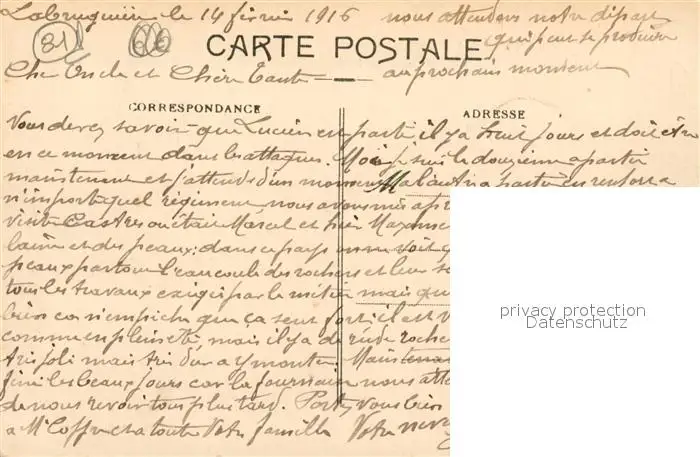 Labruguière le 14 février 1916
nous attendons notre départ
qui peut se produire
au prochain moment
81
CARTE POSTALE
Cher Oncle et Chère Tante
CORRESPONDANCE
ADRESSE
Vous devez savoir que Lucien est parti il y a huit jours et doit être
en ce moment dans les attaques. Moi je suis le douzième a partir
maintenant et j'attends d'un moment a l'autre a partir en renfort a
n'importe quel régiment nous avons
visite Castres ou était Marcel et
laine et des peaux: dans ce pays on ne voit
peaux partout beaucoup de rochers et leur
tous les travaux exigé par le métier mais
bien ca n'empiche que ça sent fort il est
comme en plein été mais il y a de rude
très joli mais très dur a y monter
fini les beaux jours car la
de nous revoir tous plus tard. Portez vous bien
a Mr et a toute votre famille Votre
privacy protection
Datenschutz